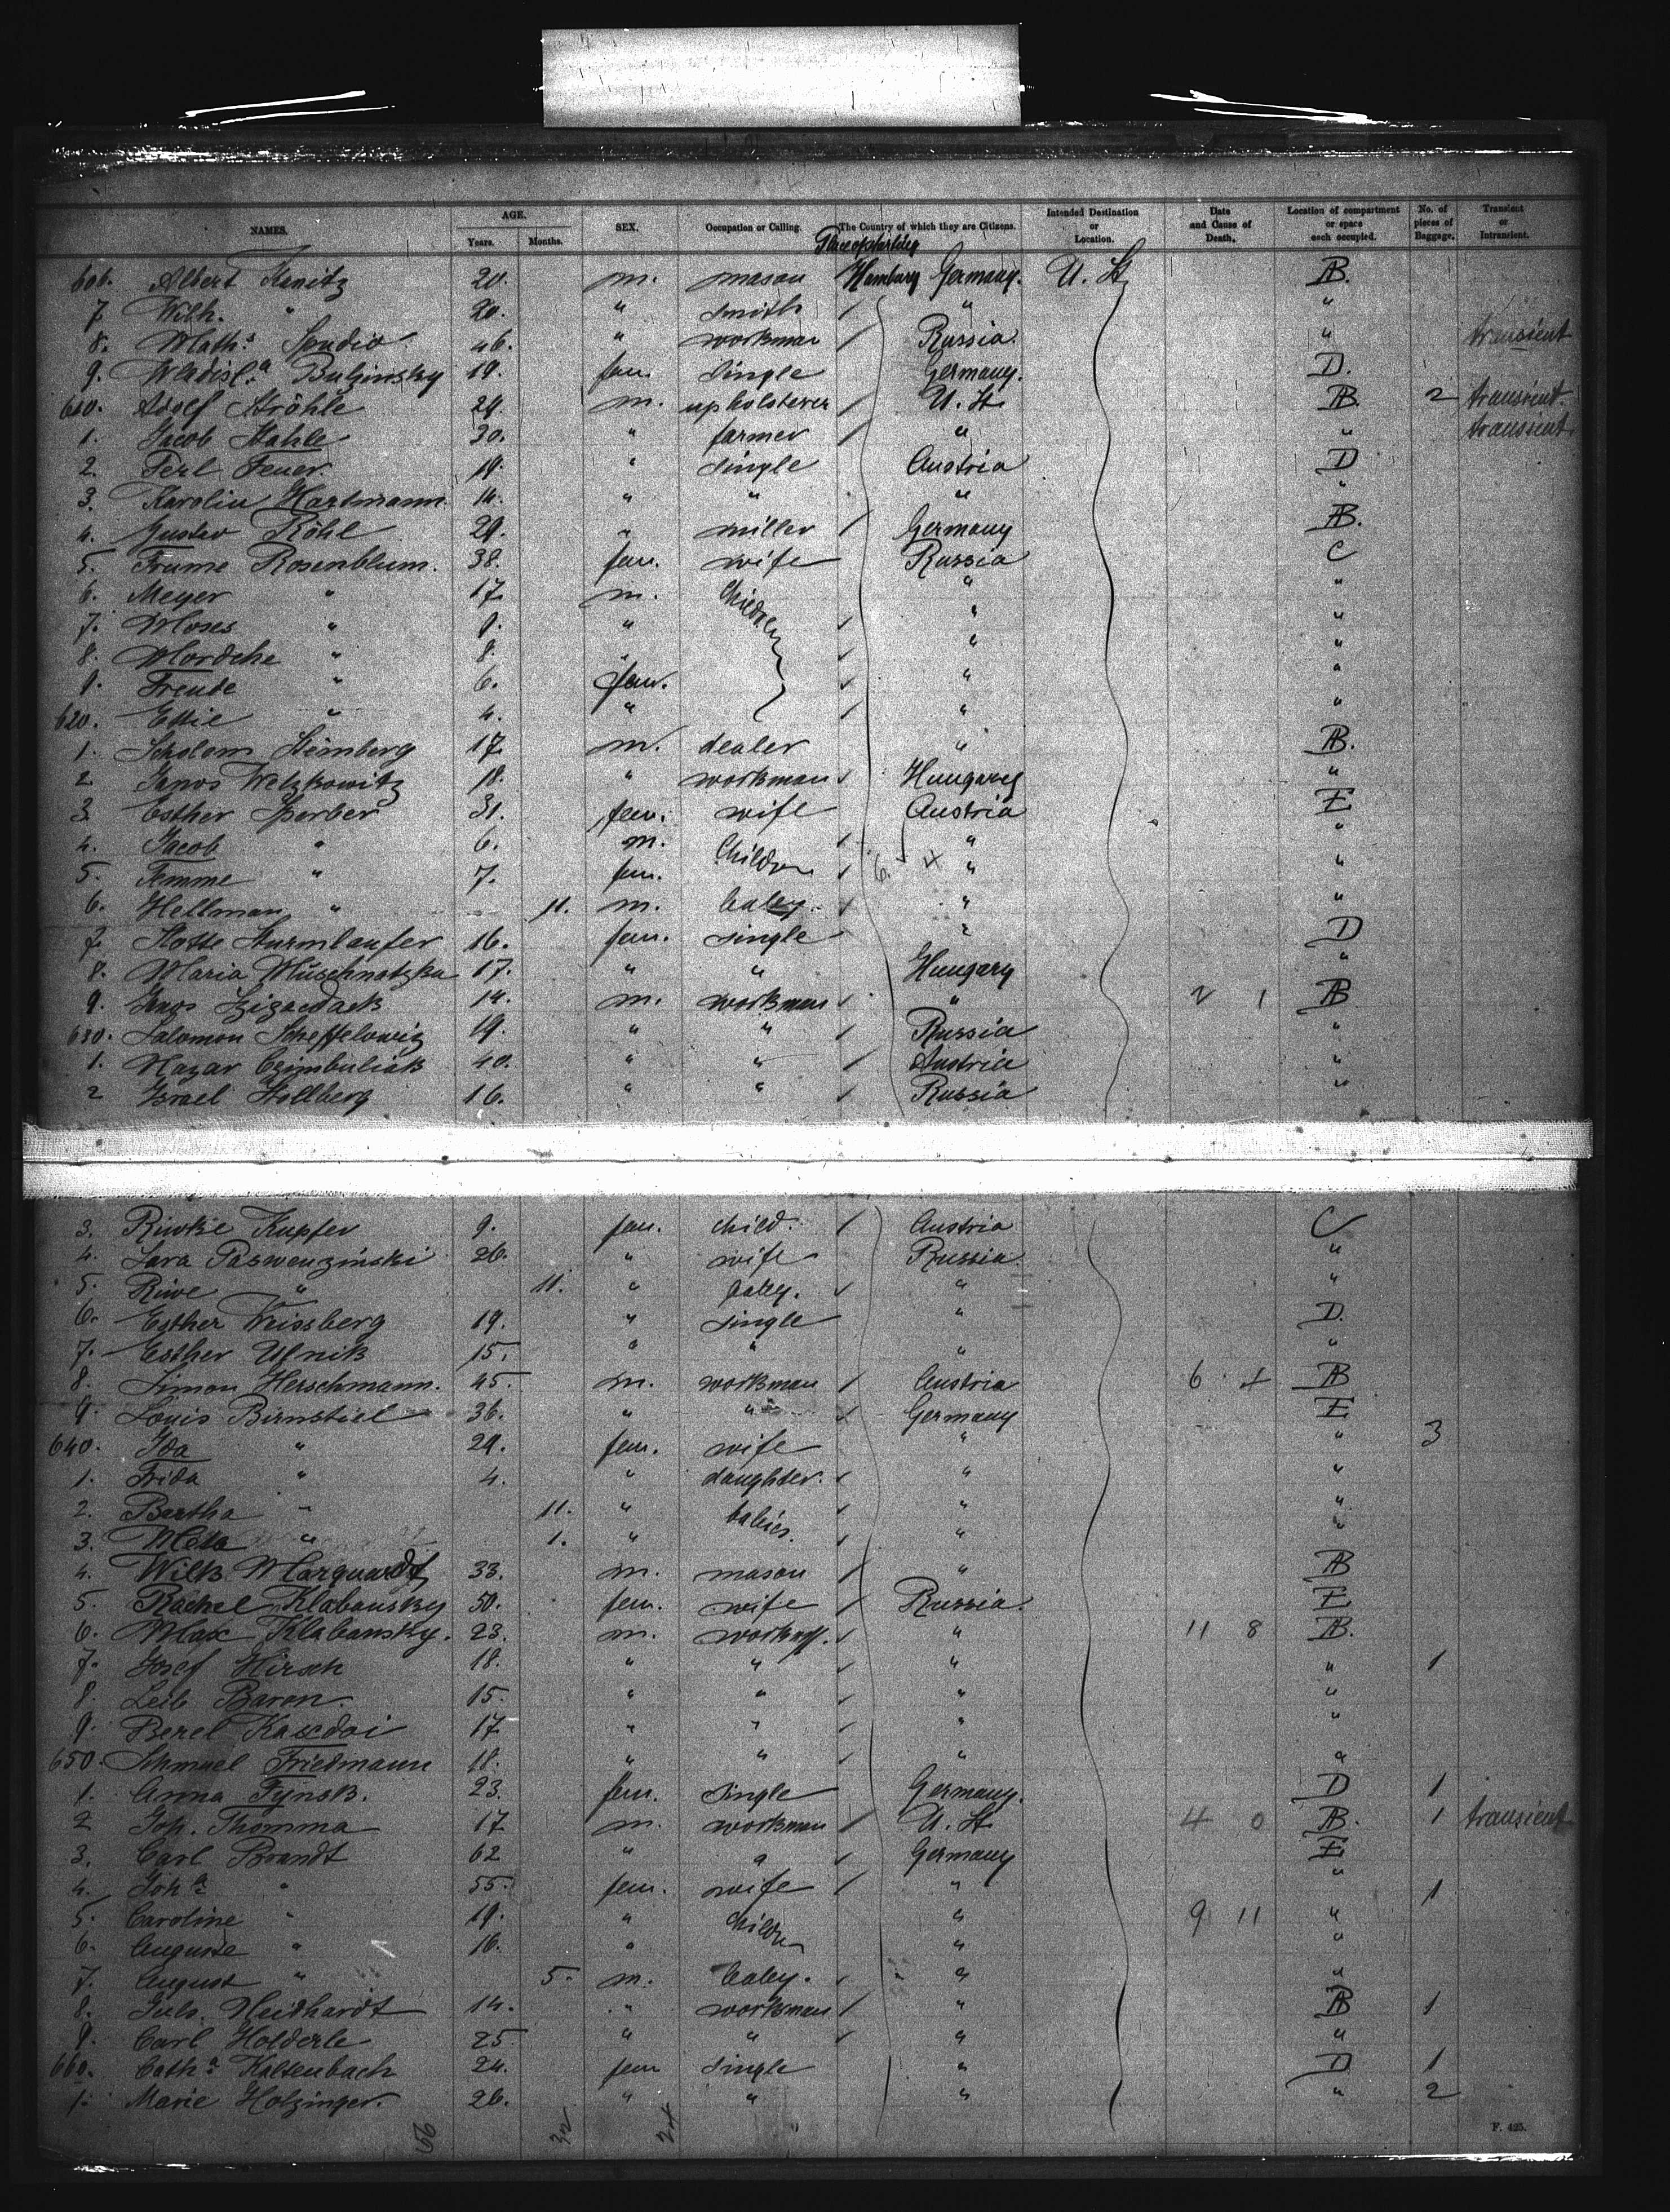 NAMES. AGE. Years. Months. SEX. Occupation or Calling. The Country of which they are Citizens. Intended Destination or Location. Date and Cause of Death. Location of compartment or space each occupied. No. of pieces of Baggage. Transient or Intransient.
Place of starting
606. Albert Kanitz 20. m. mason Hamburg Germany. U. St. AB.
7. Wilh. " 20. " smith / " "
8. Math.s 46. " workman / Russia. " transient
9. Wladisl.a Bulzinsky 19. fem. single Germany. D.
610. Adolf Ströhle 29. m. upholsterer / U. St. AB. 2 transient
1. Jacob Stahle 30. " farmer / " " transient.
2. Perl Feuer 19. " single Austria D
3. Karolin Hartmann. 14. " " " "
4. Gustav Röhl 29. " miller / Germany AB.
5. Frume Rosenblum. 38. fem. wife Russia C
6. Meyer " 17. m. Children " "
7. Moses " 9. " " "
8. Mordche " 8. " " "
9. Freude " 6. fem. " "
620. Ettie " 4. " / " "
1. Scholem Steinberg 17. m. dealer " AB.
2 Janos Welzkowitz 18. " workman Hungary "
3 Esther Sperber 31. fem. wife Austria E
4. Jacob " 6. m. Children " "
5. Femme " 7. fem. 6. 4 " "
6. Hellman " 11. m. baby. " "
7. Sturmlaufer 16. fem. single " D
8. Maria Muschnatzka 17. " " Hungary "
9. 14. m. workman " 2 1 AB
630. Salomon Scheffelowiz 19. " " / Russia "
1. Nazar Czimbuliak 40. " " / Austria "
2 Israel Stollberg 16. " " Russia "
3. Riwke Kupfer 9. fem. child. / Austria C
4. Sara Paswenzinski 26. " wife Russia. "
5. Riwe " 11. " baby. " "
6. Esther Weissberg 19. " single " D.
7. Esther Ufnik 15. " " " "
8. Simon Herschmann. 45. m. workman / Austria 6 4 AB
9. Louis Birnstiel 36. " " Germany E
640. Ida " 29. fem. wife " " 3
1. Frida " 4. " daughter. " "
2. Bertha " 11. " babies. " "
3. Meta " 1. " " "
4. Wilh. Marquardt 33. m. mason / " AB
5. Rachel Klabansky 50. fem. wife / Russia. E
6. Max Klabansky. 23. m. workm. " 11 8 AB.
7. Josef Hirsch 18. " " " " 1
8. Leib Baron. 15. " " " "
9. Berel 17. " " " "
650. Schmuel Friedmann 18. " " " "
1. Anna Fynsk. 23. fem. single Germany. D 1
2 Joh. Thomma 17. m. workman / U. St. 4 0 AB. 1 transient
3. Carl Brandt 62 " " Germany E
4. Joh.a " 55. fem. wife / " " 1
5. Caroline " 19. " Childr. " 9 11 "
6. Auguste " 16. " " "
7. August " 5. m. baby. " "
8. Juls. Neidhardt 14. " workman / " AB 1
9. Carl Holderle 25. " " " "
660. Cath.a Kaltenbach 24. fem single " D 1
1. Marie Holzinger. 26. " " " " 2
56 32 24
F. 425.